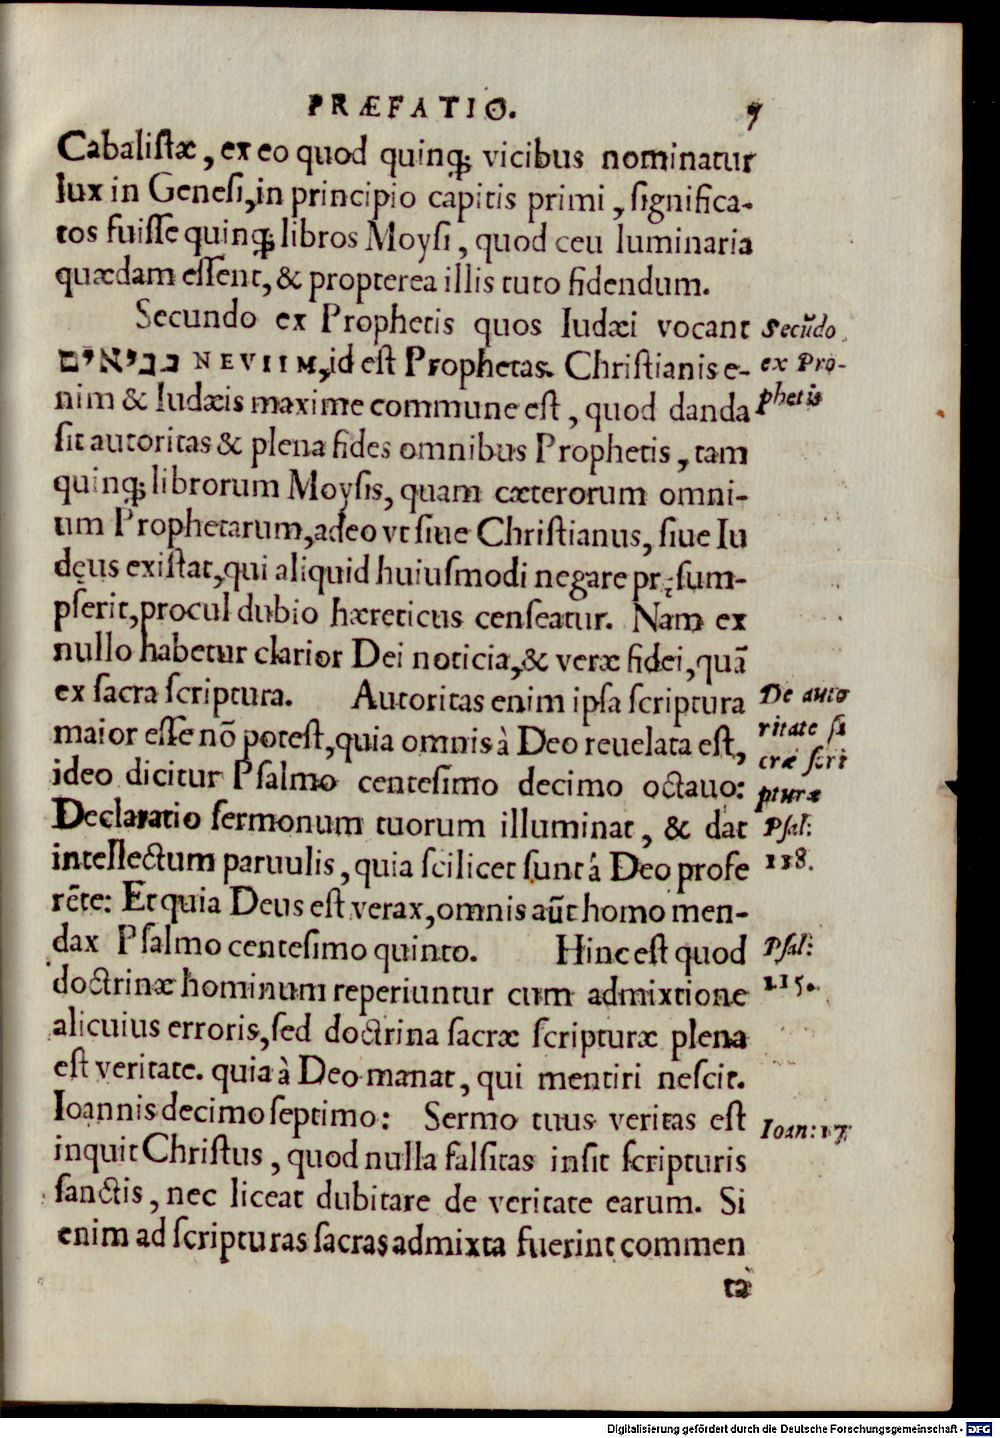 PRÆFATIO. 7
Cabaliſtæ, ex eo quod quinq; vicibus nominatur
lux in Geneſi, in principio capitis primi, ſignifica-
tos fuiſſe quinq; libros Moyſi, quod ceu luminaria
quædam eſſent, & propterea illis tuto fidendum.
Secundo ex Prophetis quos Iudæi vocant
נביאים NEVIIM, id eſt Prophetas. Chriſtianis e-
nim & Iudæis maxime commune eſt, quod danda
ſit autoritas & plena fides omnibus Prophetis, tam
quinq; librorum Moyſis, quam cæterorum omni-
um Prophetarum, adeo vt ſiue Chriſtianus, ſiue Iu
dęus exiſtat, qui aliquid huiuſmodi negare pręſum-
pſerit, procul dubio hæreticus cenſeatur. Nam ex
nullo habetur clarior Dei noticia, & veræ fidei, quā
ex ſacra ſcriptura. Autoritas enim ipſa ſcriptura
maior eſſe nō poteſt, quia omnis à Deo reuelata eſt,
ideo dicitur Pſalmo centeſimo decimo octauo:
Declaratio ſermonum tuorum illuminat, & dat
intellectum paruulis, quia ſcilicet ſunt á Deo profe
rēte: Et quia Deus eſt verax, omnis aūt homo men-
dax Pſalmo centeſimo quinto. Hinc eſt quod
doctrinæ hominum reperiuntur cum admixtione
alicuius erroris, ſed doctrina ſacræ ſcripturæ plena
eſt veritate. quia à Deo manat, qui mentiri neſcit.
Ioannis decimo ſeptimo: Sermo tuus veritas eſt
inquit Chriſtus, quod nulla falſitas inſit ſcripturis
ſanctis, nec liceat dubitare de veritate earum. Si
enim ad ſcripturas ſacras admixta fuerint commen
ta
Secūdo
ex Pro-
phetis
De auto
ritate ſa
cræ ſcri
pturæ
Pſal:
118.
Pſal:
115.
Ioan: 17.
Digitalisierung gefördert durch die Deutsche Forschungsgemeinschaft - DFG